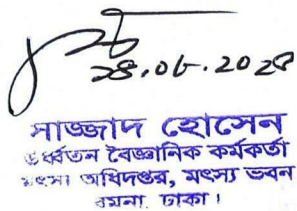 28.06.2028
সাজ্জাদ হোসেন
ঊর্ধ্বতন বৈজ্ঞানিক কর্মকর্তা
মৎস্য অধিদপ্তর, মৎস্য ভবন
রমনা, ঢাকা।